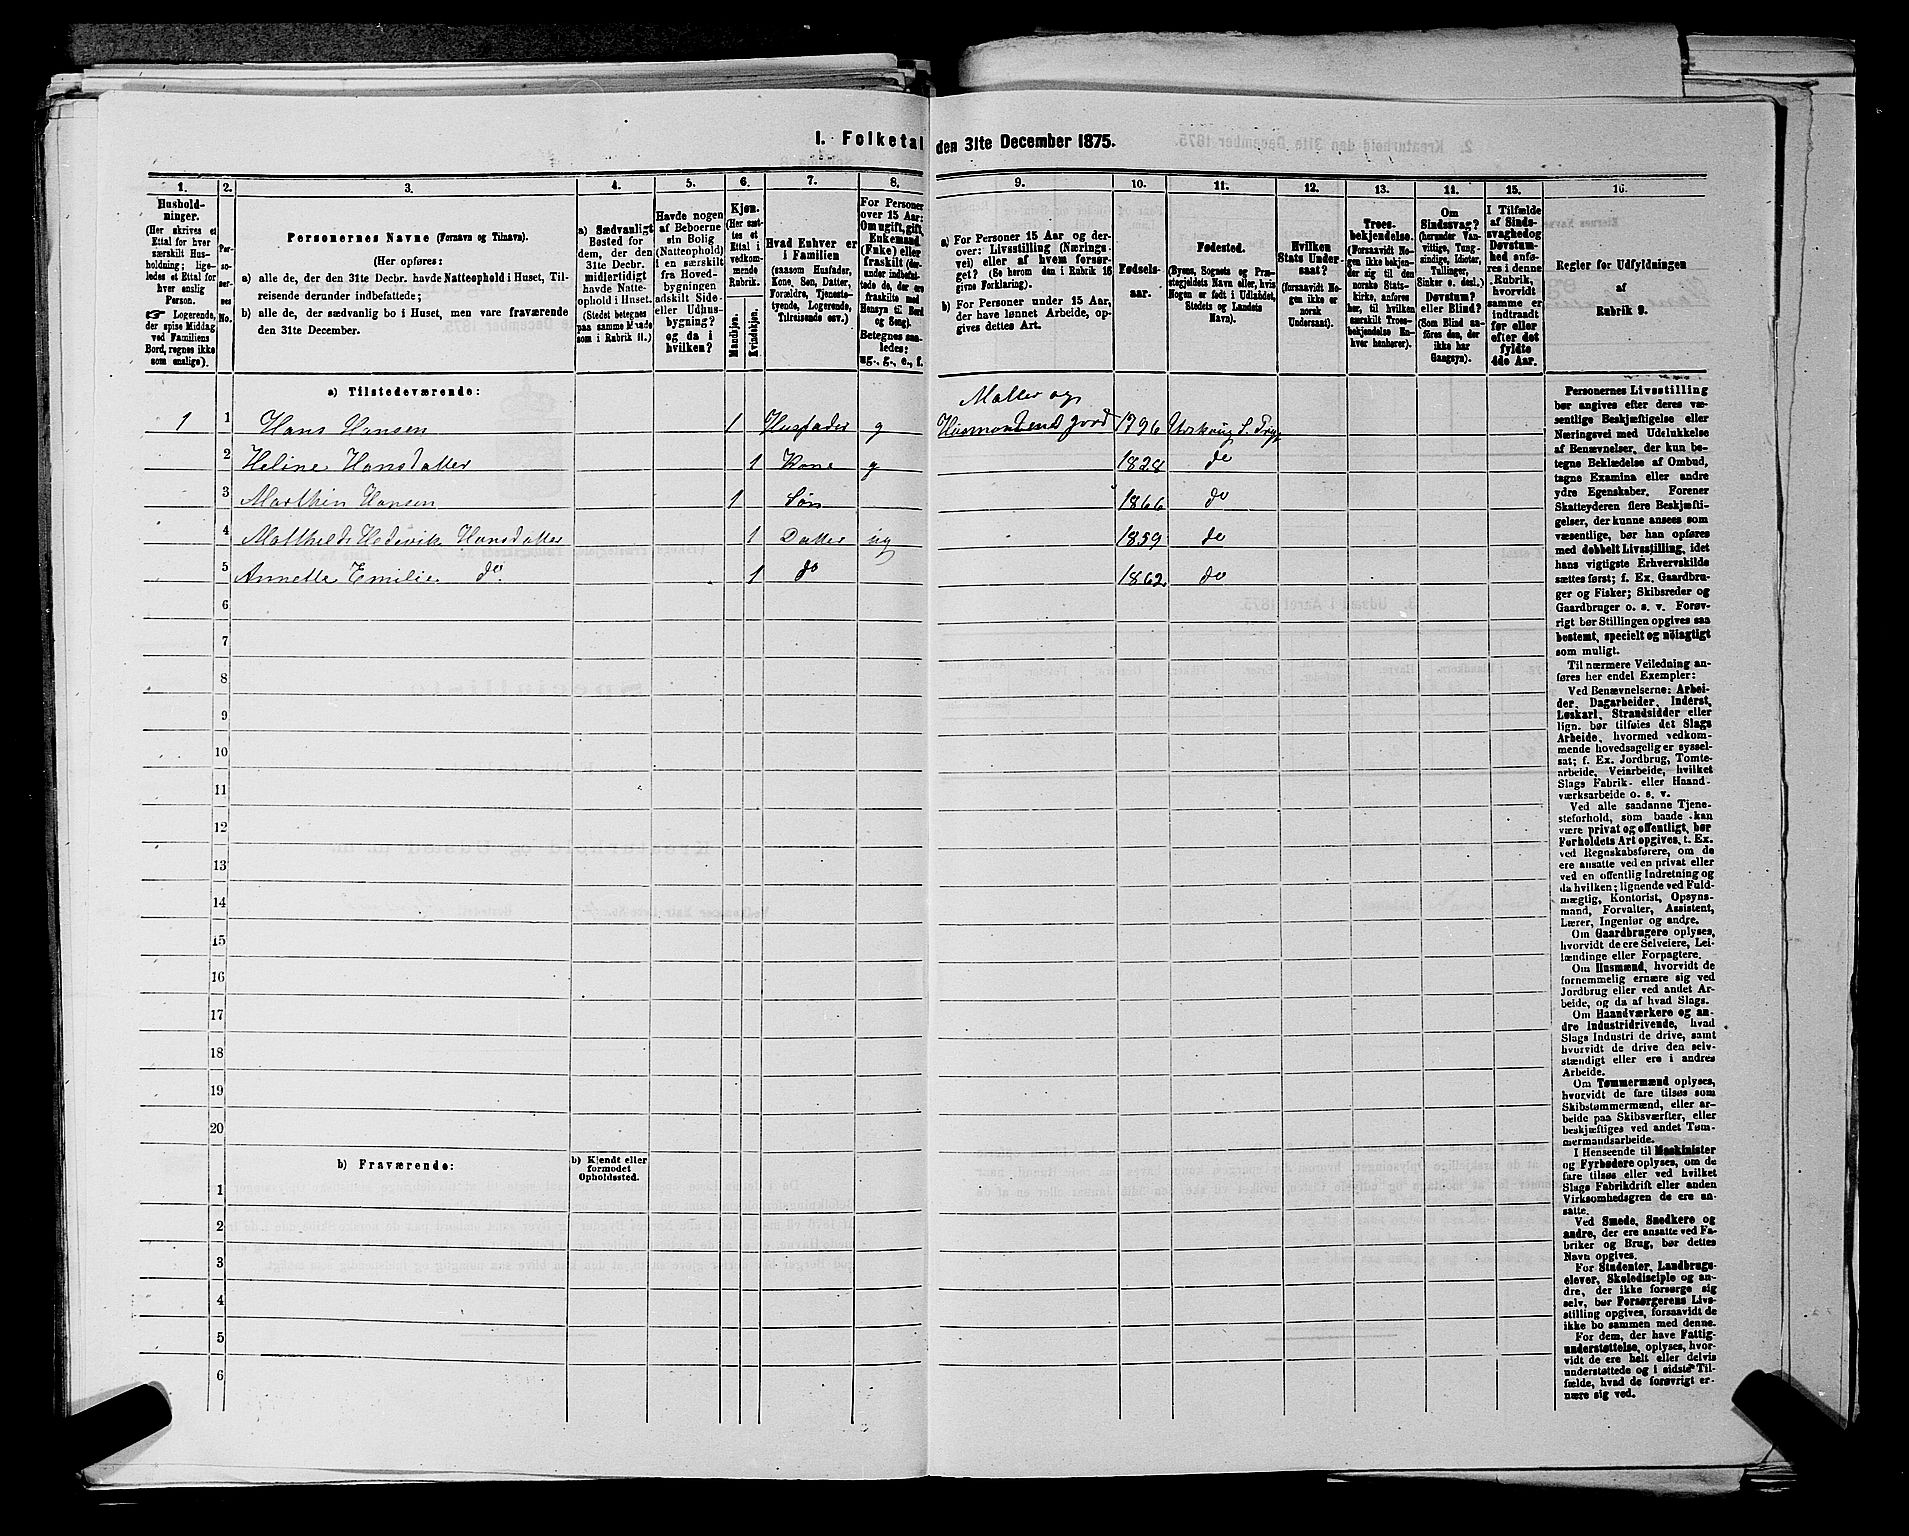 I. Folketal den 31te December 1875.
1.
2.
3.
4.
5.
6.
7.
8.
9.
10.
11.
12.
13.
14.
15.
16.
Hushold-
ninger.
(Her skrives et
Ettal for hver
særskilt Hus-
holdning; lige-
ledes et Ettal for
hver enslig
Person.
☞ Logerende,
der spise Middag
ved Familiens
Bord, regnes ikke
som enslige).
Per-
so-
ner-
nes
No.
Personernes Navne (Fornavn og Tilnavn).
(Her opføres:
a) alle de, der den 31te Decbr. havde Natteophold i Huset, Til-
reisende derunder indbefattede;
b) alle de, der sædvanlig bo i Huset, men vare fraværende
den 31te December.
a) Sædvanligt
Bosted for
dem, der den
31te Decbr.
midlertidigt
havde Natte-
ophold i Huset.
(Stedet betegnes
paa samme Maade
som i Rubrik 11.)
Havde nogen
af Beboerne
sin Bolig
(Natteophold)
i en særskilt
fra Hoved-
bygningen
adskilt Side-
eller Udhus-
bygning?
og da i
hvilken?
Kjøn.
(Her sæt-
tes et
Ettal i
vedkom-
mende
Rubrik.
Mandkjøn.
Kvindekjøn.
Hvad Enhver er
i Familien
(saasom Husfader,
Kone, Søn, Datter,
Forældre, Tjeneste-
tyende, Logerende,
Tilreisende osv.)
For Personer
over 15 Aar:
Om ugift, gift,
Enkemand
(Enke) eller
fraskilt (der-
under indbefat-
tede de, der ere
fraskilte med
Hensyn til Bord
og Seng).
Betegnes saa-
ledes:
ug., g., e., f.
a) For Personer 15 Aar og der-
over: Livsstilling (Nærings-
vei) eller af hvem forsør-
get? (Se herom den i Rubrik 16
givne Forklaring).
b) For Personer under 15 Aar,
der have lønnet Arbeide, op-
gives dettes Art.
Fødsels-
aar.
Fødested.
(Byens, Sognets og Præ-
stegjeldets Navn eller, hvis
Nogen er født i Udlandet,
Stedets og Landets
Navn).
Hvilken
Stats Under-
saat?
(forsaavidt No-
gen ikke er
norsk
Undersaat).
Troes-
bekjendelse.
(Forsaavidt No-
gen ikke bekjen-
der sig til den
norske Stats-
kirke, anføres
her, til hvilken
særskilt Troes-
bekjendelse En-
hver henhører).
Om
Sindssvag?
(herunder Van-
vittige, Tung-
sindige, Idioter,
Tullinger,
Sinker o. desl.)
Døvstum?
eller Blind?
(Som Blind an-
føres den, der
ikke har
Gangsyn).
I Tilfælde
af Sinds-
svaghed og
Døvstum-
hed anfø-
res i denne
Rubrik,
hvorvidt
samme er
indtraadt
før eller
efter det
fyldte
4de Aar.
Regler for Udfyldningen
af
Rubrik 9.
a) Tilstedeværende:
Møller og
1 1 Hans Hansen 1 Husfader g Husmand med Jord 1796 Urskoug
2 Heline Hansdatter 1 Kone g 1828 do
3 Marthin Hansen 1 Søn 1866 do
4 Mathilde Hedevik Hansdatter 1 Datter ug 1859 do
5 Annette Emilie do. 1 do 1862 do
6
7
8
9
10
11
12
13
14
15
16
17
18
19
20
b) Fraværende:
b) Kjendt eller
formodet
Opholdssted.
1
2
3
4
5
6
Personernes Livsstilling
bør angives efter deres væ-
sentlige Beskjæftigelse eller
Næringsvei med Udelukkelse
af Benævnelser, der kun be-
tegne Beklædelse af Ombud,
tagne Examina eller andre
ydre Egenskaber. Forener
Skatteyderen flere Beskjæfti-
gelser, der kunne ansees som
væsentlige, bør han opføres
med dobbelt Livsstilling, idet
hans vigtigste Erhvervskilde
sættes først; f. Ex. Gaardbru-
ger og Fisker; Skibsreder og
Gaardbruger o. s. v. Forøv-
rigt bør Stillingen opgives saa
bestemt, specielt og nøiagtigt
som muligt.
Til nærmere Veiledning an-
føres her endel Exempler:
Ved Benævnelserne: Arbei-
der, Dagarbeider, Inderst,
Løskarl, Strandsidder eller
lign. bør tilføies det Slags
Arbeide, hvormed vedkom-
mende hovedsagelig er syssel-
sat; f. Ex. Jordbrug, Tomte-
arbeide, Veiarbeide, hvilket
Slags Fabrik- eller Haand-
værksarbeide o. s. v.
Ved alle saadanne Tjene-
steforhold, som baade kan
være privat og offentligt, bør
Forholdets Art opgives, t. Ex.
ved Regnskabsførere, om de
ere ansatte ved en privat eller
ved en offentlig Indretning og
da hvilken; lignende ved Fuld-
mægtig, Kontorist, Opsyns-
mand, Forvalter, Assistent,
Lærer, Ingeniør og andre.
Om Gaardbrugere oplyses,
hvorvidt de ere Selveiere, Lei-
lændinge eller Forpagtere.
Om Husmænd, hvorvidt de
fornemmelig ernære sig ved
Jordbrug eller ved andet Ar-
beide, og da af hvad Slags.
Om Haandværkere og an-
dre Industridrivende, hvad
Slags Industri de drive, samt
hvorvidt de drive den selv-
stændigt eller ere i andres
Arbeide.
Om Tømmermænd oplyses,
hvorvidt de fare tilsøs som
Skibstømmermænd, eller ar-
beide paa Skibsværfter, eller
beskjæftiges ved andet Tøm-
mermandsarbeide.
I Henseende til Maskinister
og Fyrbødere oplyses, om de
fare tilsøs eller ved hvilket
Slags Fabrikdrift eller anden
Virksomhedsgren de ere an-
satte.
Ved Smede, Snedkere og
andre, der ere ansatte ved Fa-
briker og Brug, bør dettes
Navn opgives.
For Studenter, Landbrugs-
elever, Skoledisciple og an-
dre, der ikke forsørge sig
selv, bør Forsørgerens Livs-
stilling opgives, forsaavidt de
ikke bo sammen med denne.
For dem, der have Fattig-
understøttelse, oplyses, hvor-
vidt de ere helt eller delvis
understøttede og i sidste Til-
fælde, hvad de forøvrigt er-
nære sig ved.